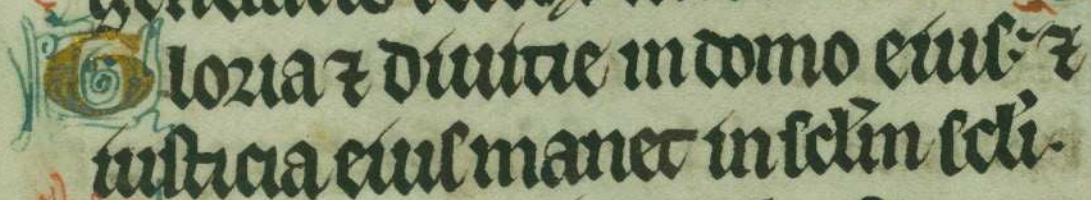 Gloria ⁊ diuitie in domo eius: ⁊
iusticia eius manet in sclm̄ scli.